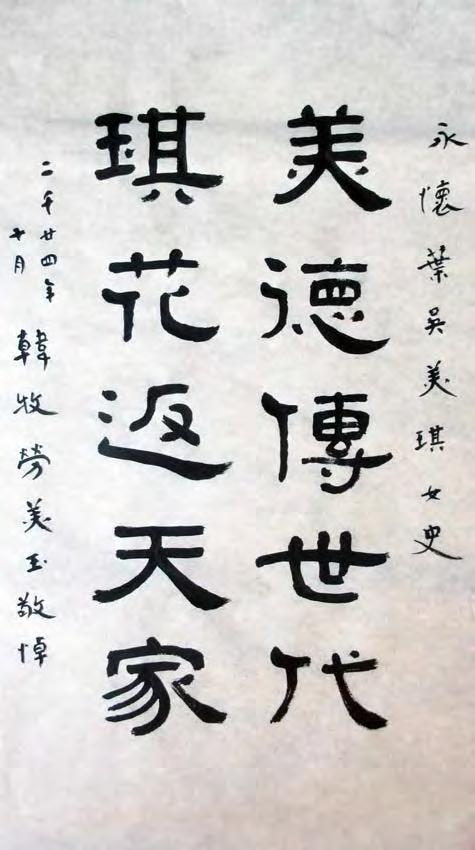 永懷葉吳美琪女史
美德傳世代
琪花返天家
二千廿四年
十月
韓牧勞美玉敬悼